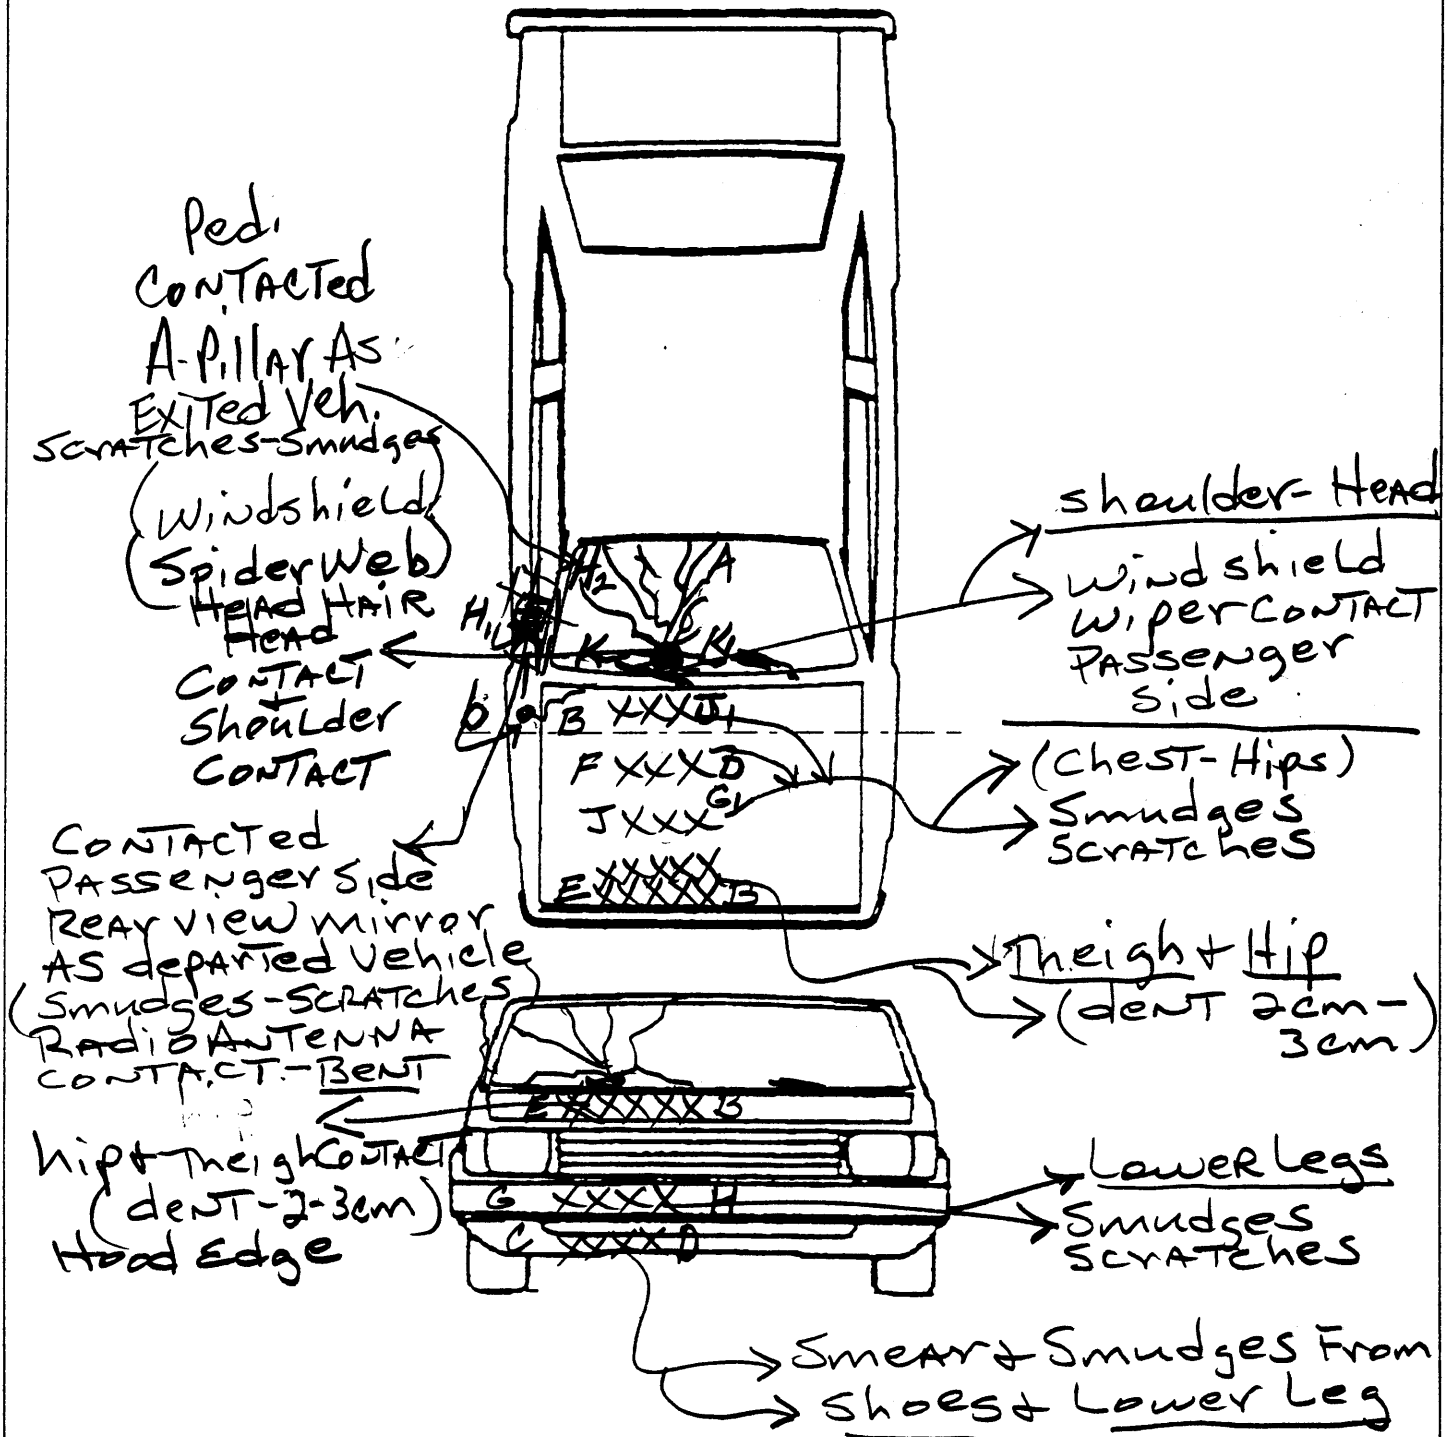 Ped.
CONTACTed
A-Pillar As
EXITed Veh.
Scratches-Smudges
(Windshield
Spider Web)
Head HAIR
Head
CONTACT
+
Shoulder
CONTACT
CONTACTed
PASSENger Side
Rear view mirror
AS dePARTed Vehicle
(Smudges-SCRATches
Radio ANTENNA
CONTACT.-BENT
hip + Theigh CONTACT
(deNT-2-3cm)
Hood Edge
H2
A
C
H1
K
K1
b
B XXX J1
F XXX D
G1
J XXX
E XXXXX B
E XXXXX B
G XXXX H
C XXXX D
shoulder-Head
Windshield
Wiper CONTACT
PASSENger
Side
(Chest-Hips)
Smudges
Scratches
Theigh + Hip
(deNT 2cm-
3cm)
Lower Legs
Smudges
Scratches
Smear + Smudges From
Shoes + Lower Leg